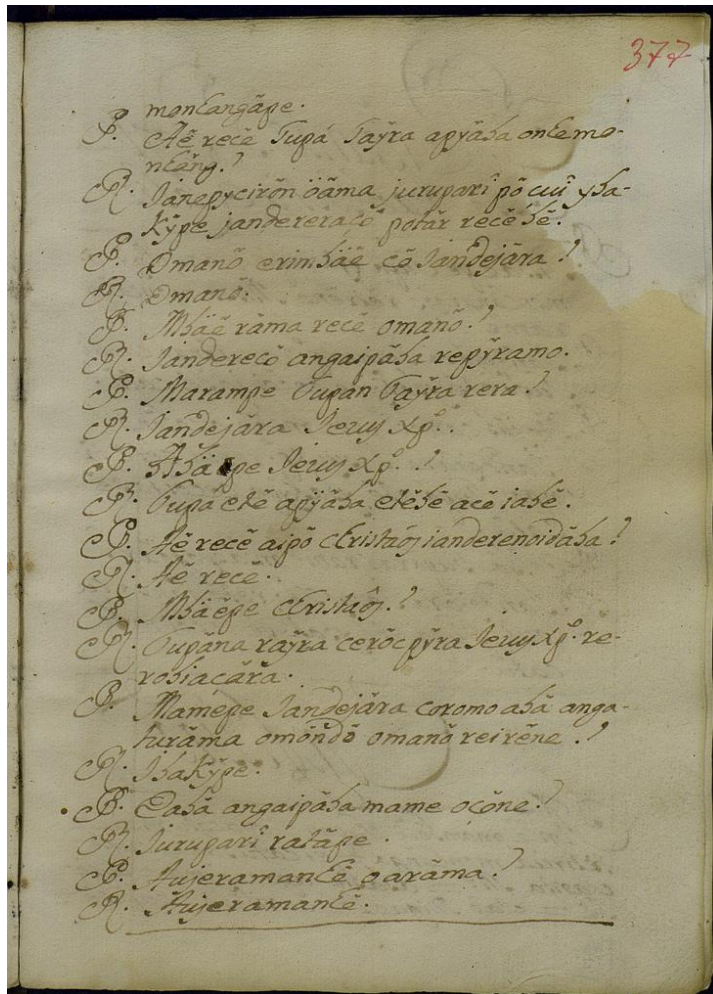 377
montangãpe.
P. Aẽ recẽ Tupá Taÿra apyába onẽmo-
ntãng?
R. Janepycirõn õãma juruparî põ cuî yba-
kÿpe jandererasõ potár recẽhẽ.
P. Omanõ erimbäẽ cõ Jandejãra?
R. Omanõ.
P. Mbäẽ rãma recẽ omanõ?
R. Janderecõ angaipãba repÿramo.
P. Marampe Tupan Taÿra rera?
R. Jandejãra Jesus Xp.º.
P. Abã pe Jesus Xp.º?
R. Tupã etẽ apÿába etẽbẽ acẽ iabẽ.
P. Aẽ recẽ aipõ Christãos ianderenoidãba?
R. Aẽ recẽ.
P. Mbäẽpe Christãos?
R. Tupãna raÿra cerõcpÿra Jesus Xp.º re-
robiacãra.
P. Mamẽpe Jandejãra coromo abã anga-
turãma omõndõ omanõ reirẽne?
R. Ybakÿpe.
P. Eabã angaipába mame oçõne?
R. Juruparî ratãpe.
P. Aujeramantẽ oarãma?
R. Aujeramantẽ.